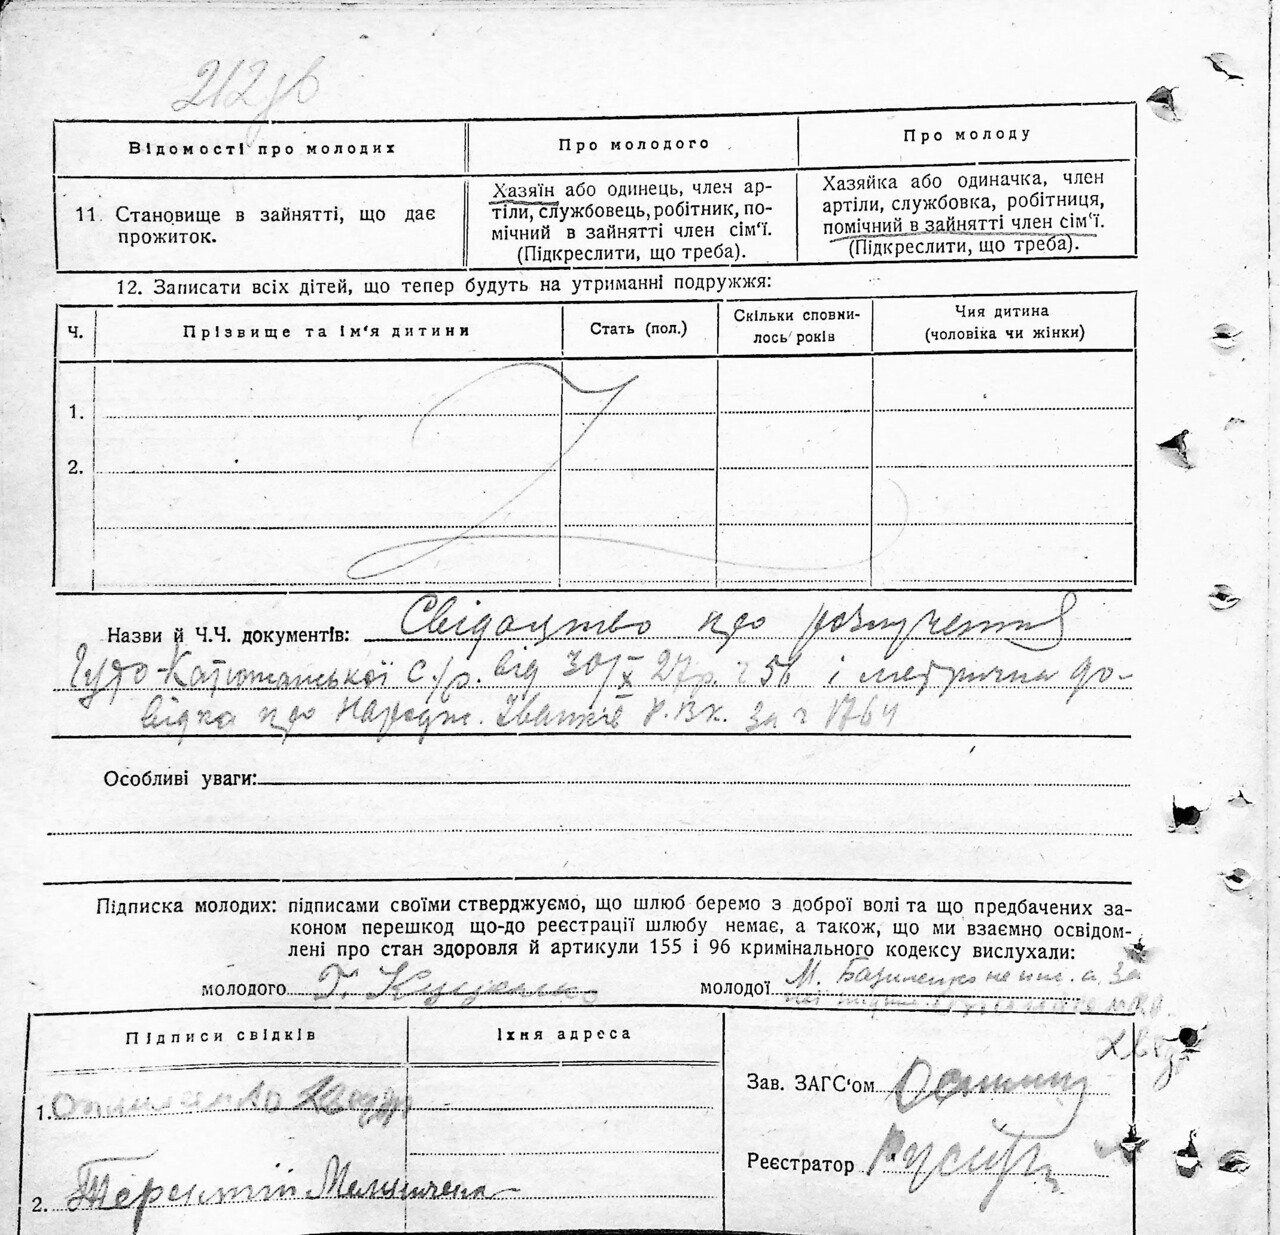 212зв
Відомості про молодих
Про молодого
Про молоду
11. Становище в зайнятті, що дає
прожиток.
Хазяїн або одинець, член ар-
тіли, службовець, робітник, по-
мічний в зайнятті член сім'ї.
(Підкреслити, що треба).
Хазяйка або одиначка, член
артіли, службовка, робітниця,
помічний в зайнятті член сім'ї.
(Підкреслити, що треба).
12. Записати всіх дітей, що тепер будуть на утриманні подружжя:
Ч.
Прізвище та ім'я дитини
Стать (пол.)
Скільки сповни-
лось років
Чия дитина
(чоловіка чи жінки)
1.
2.
Назви й Ч.Ч. документів: Свідоцтво про розлучення
с/р. від 30/X 27р. ч 56 і метрична до-
відка про народж. Р.В.К. за ч 1764
Особливі уваги:
Підписка молодих: підписами своїми стверджуємо, що шлюб беремо з доброї волі та що предбачених за-
коном перешкод що-до реєстрації шлюбу немає, а також, що ми взаємно освідом-
лені про стан здоровля й артикули 155 і 96 кримінального кодексу вислухали:
молодого Г.
молодої М. Базиленко не пис. а за
Підписи свідків
Їхня адреса
1.
2. Терентій
Зав. ЗАГС'ом
Реєстратор